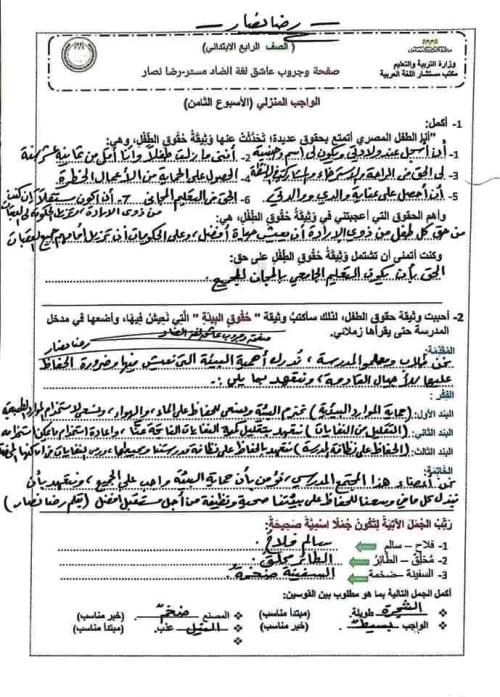 رضا نصار
( الصف الرابع الابتدائي )
وزارة التربية والتعليم
مكتب مستشار اللغة العربية
صفحة وجروب عاشق لغة الضاد مستر-رضا نصار
الواجب المنزلي (الأسبوع الثامن)
1- أكمل:
"أنا الطفل المصري أتمتع بحقوق عديدة؛ تَحَدَّثَتْ عنها وَثِيقَةُ حُقُوقِ الطِّفْلِ، وهي:
1- أن أسجل عند ولادتي ويكون لي اسم وجنسية 2- أنني ما زلت طفلاً وأنا أقل من ثمانية عشر سنة
3- لي الحق في الراحة والاسترخاء والمشاركة 4- الحصول على الحماية من الأعمال الخطرة
5- أن أحصل على عناية والدي ووالدتي 6- الحق في التعليم المجاني 7- أن أكون مستقلاً إن كنت
من ذوي الإرادة
وأهم الحقوق التي أعجبتني في وَثِيقَةُ حُقُوقِ الطِّفْلِ، هي:
من حق كل طفل من ذوي الإرادة أن يعيش حياة أفضل، وعلى الحكومات أن تزيل أمامهم جميع العقبات
وكنت أتمنى أن تشتمل وَثِيقَةُ حُقُوقِ الطِّفْلِ على حق:
الحق بأن يكون التعليم الجامعي بالمجان للجميع
2- أحببت وثيقة حقوق الطفل، لذلك سأكتب وثيقة " حُقُوقِ البيئَةِ " الَّتِي نَعِيشُ فِيهَا، وأضعها في مدخل
المدرسة حتى يقرأها زملائي.
صفحة وجروب عاشق لغة الضاد رضا نصار
المُقَدِّمَة:
نحن طلاب ومعلمو المدرسة، ندرك أهمية البيئة التي نعيش فيها وضرورة الحفاظ
عليها للأجيال القادمة، ونتعهد بما يلي:
الفِكَر:
البند الأول: (حماية الموارد البيئية) نحترم البيئة ونسعى للحفاظ على الماء، والهواء،
البند الثاني: (التقليل من النفايات) نتعهد بتقليل كمية النفايات الناتجة عنا، وإعادة استخدام ما يمكن استخدامه
البند الثالث: (الحفاظ على نظافة المدرسة) نتعهد بالحفاظ على نظافة مدرستنا ومحيطها،
الخَاتِمَة:
نحن أعضاء هذا المجتمع المدرسي، نؤمن بأن حماية البيئة واجب على الجميع، ونتعهد بأن
نبذل كل ما في وسعنا للحفاظ على بيئتنا صحية ونظيفة من أجل مستقبل أفضل (بقلم رضا نصار)
رَتِّبْ الجُمَلَ الآتِيَةَ لِتُكَوِّنَ جُمَلًا اسْمِيَّةً صَحِيحَةً:
1- فلاح – سالم سالم فلاح
2- مُحَلِّقٌ – الطَّائِرُ الطائر محلق
3- السفينة -ضخمة السفينة ضخمة
أكمل الجمل التالية بما هو مطلوب بين القوسين:
الشجرة طويلة. (مبتدأ مناسب) المصنع ضخم (خبر مناسب)
الواجب بسيط. (خبر مناسب) النيل عذب. (مبتدأ مناسب)